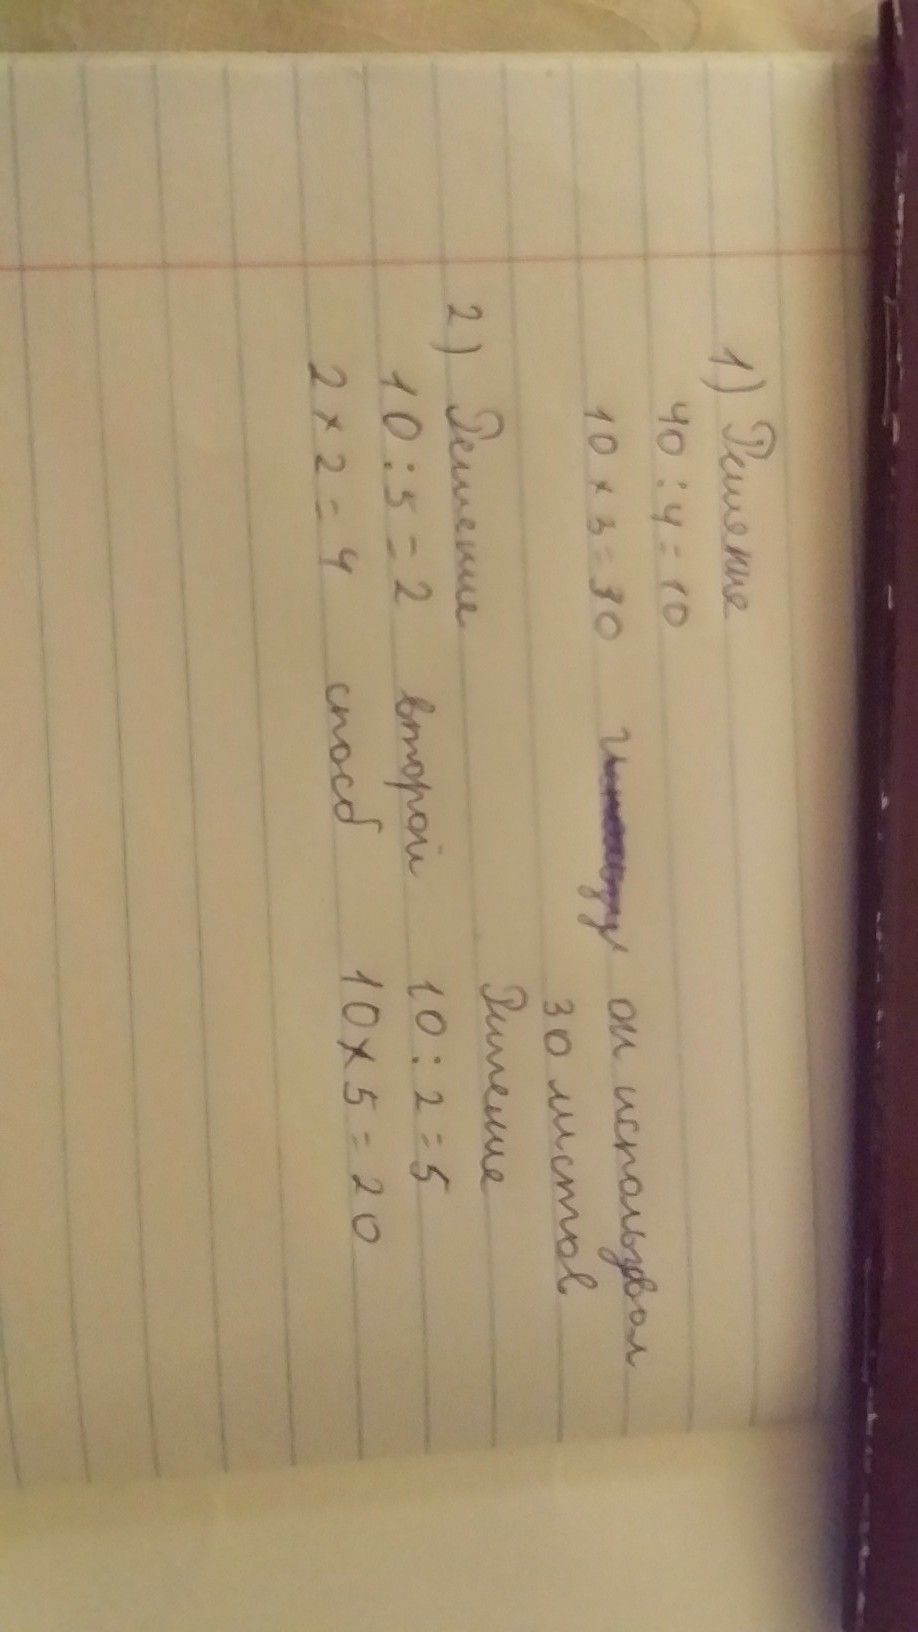 1) Решение
40 : 4 = 10
10 × 3 = 30 он использвал
30 листов
2) Решение
10 : 5 = 2
2 × 2 = 4
второй
спосб
Решение
10 : 2 = 5
10 × 5 = 20